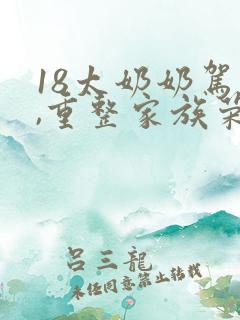 18太奶奶駕
,重整家族榮
呂三龍
未经同意禁止转载